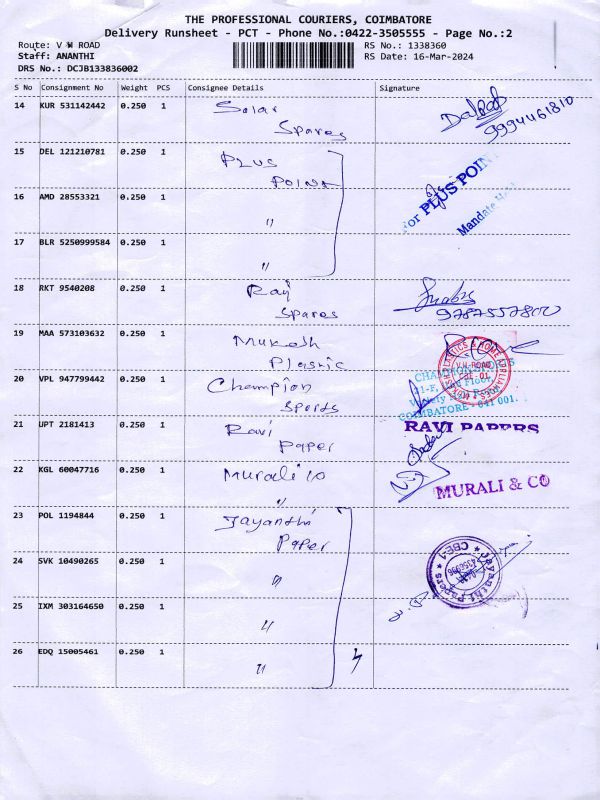 THE PROFESSIONAL COURIERS, COIMBATORE
Delivery Runsheet - PCT - Phone No.:0422-3505555 - Page No.:2
Route: V H ROAD RS No.: 1338360
Staff: ANANTHI RS Date: 16-Mar-2024
DRS No.: DCJB133836002
S No Consignment No Weight PCS Consignee Details Signature
14 KUR 531142442 0.250 1 Solar
Spares
9994461810
15 DEL 121210781 0.250 1 Plus
Point
For PLUS POINT
16 AMD 28553321 0.250 1 "
17 BLR 5250999584 0.250 1 "
18 RKT 9540208 0.250 1 Raj
Spares
9787557800
19 MAA 573103632 0.250 1 Mukesh
Plastic
V.H-ROAD
CBE-01.
20 VPL 947799442 0.250 1 Champion
Sports
COIMBATORE - 641 001.
21 UPT 2181413 0.250 1 Ravi
Paper
RAVI PAPERS
22 KGL 60047716 0.250 1 Murali co
"
MURALI & CO
23 POL 1194844 0.250 1 Jayanthi
Paper
Jayanthi Papers * CBE-1 *
24 SVK 10490265 0.250 1 "
25 IXM 303164650 0.250 1 "
26 EDQ 15005461 0.250 1 "